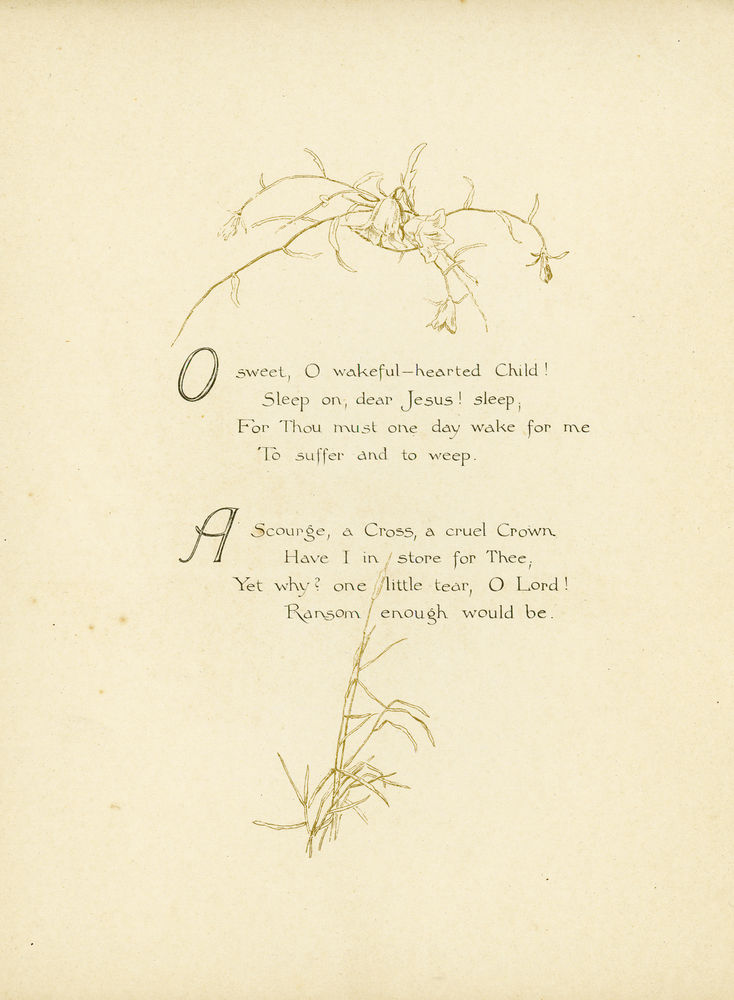 O sweet, O wakeful-hearted Child!
Sleep on, dear Jesus! sleep;
For Thou must one day wake for me
To suffer and to weep.
A Scourge, a Cross, a cruel Crown
Have I in store for Thee;
Yet why? one little tear, O Lord!
Ransom enough would be.